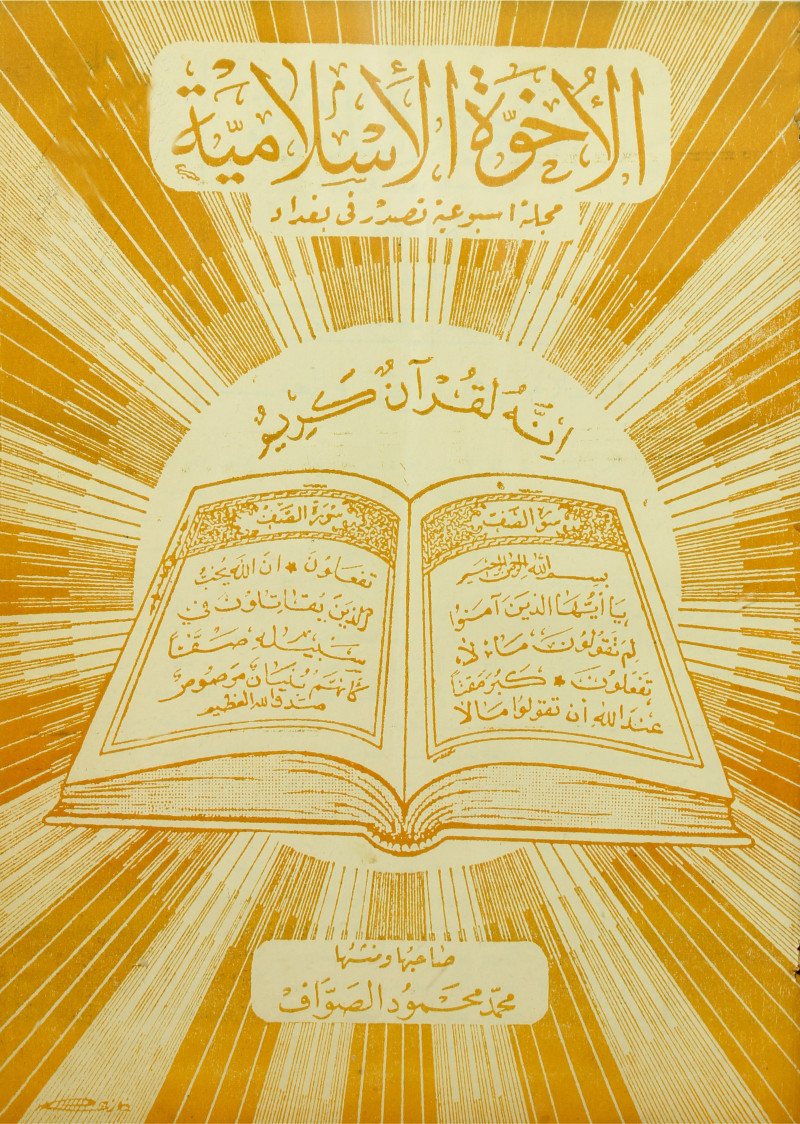 الأُخوَّة الأَسلامية
مجلة اسبوعية تصدر في بغداد
اِنَّهُ لَقُرْآنٌ كَرِيمٌ
سورة الصف
بسم الله الرحمن الرحيم
يا ايُّها الذين آمنوا
لِمَ تقولونَ ما لا
تفعلونَ * كَبُرَ مَقتاً
عندَ اللهِ أن تقولوا مالا
سورة الصف
تفعلونَ * ان الله يحبُّ
الذين يقاتلون في
سبيلهِ صفّاً
كأنهم بنيانٌ مرصوصٌ
صدق الله العظيم
صاحبها ومنشئها
محمّد محمود الصوّاف